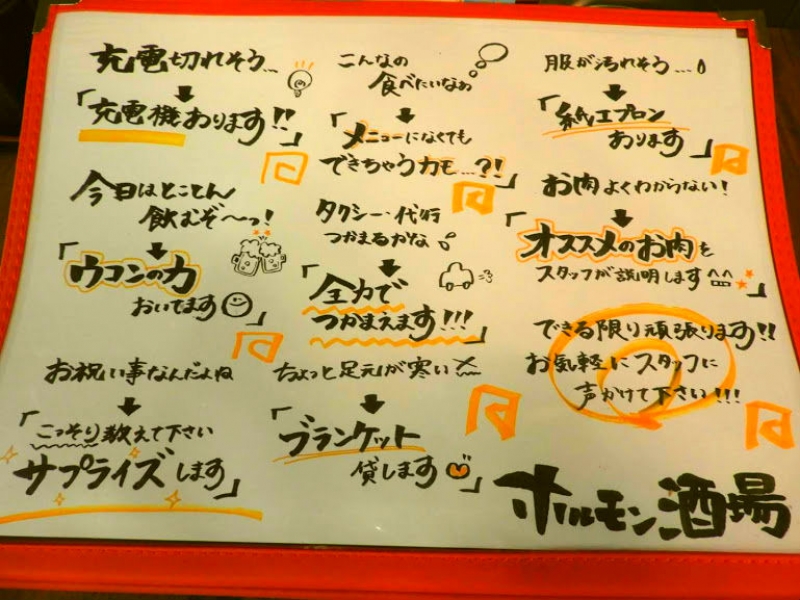 充電切れそう…
「充電機あります!!」
こんなの
食べたいなぁ
「メニューになくても
できちゃうカモ…?!」
服が汚れそう…
「紙エプロン
あります」
今日はとことん
飲むぞ〜っ!
「ウコンの力
おいてます」
タクシー・代行
つかまるかな
「全力で
つかまえます!!!」
お肉よくわからない!
「オススメのお肉を
スタッフが説明します^^」
お祝い事なんだよね
「こっそり教えて下さい
サプライズします」
ちょっと足元が寒い
「ブランケット
貸します」
できる限り頑張ります!!
お気軽にスタッフに
声がけて下さい!!!
ホルモン酒場